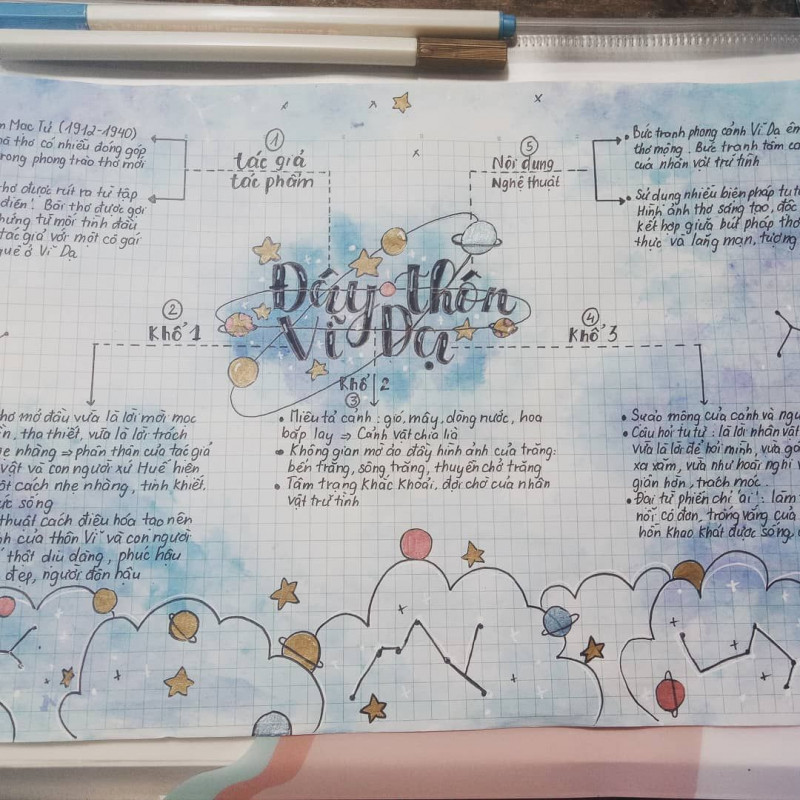 Đây thôn
Vĩ Dạ
①
tác giả
tác phẩm
Mạc Tử (1912-1940)
thơ có nhiều đóng góp
trong phong trào thơ mới
thơ được rút ra từ tập
điên". Bài thơ được gợi
hứng từ mối tình đầu
tác giả với một cô gái
quê ở Vĩ Dạ.
②
Khổ 1
mở đầu vừa là lời mời mọc
tha thiết, vừa là lời trách
nhẹ nhàng => phân thân của tác giả
vật và con người xứ Huế hiện
cách nhẹ nhàng, tinh khiết.
sức sống
thuật cách điệu hóa tạo nên
của thôn Vĩ và con người
thật dịu dàng, phúc hậu
đẹp, người đôn hậu
Khổ 2
③
• Miêu tả cảnh : gió, mây, dòng nước, hoa
bắp lay => Cảnh vật chia lìa
• Không gian mờ ảo đầy hình ảnh của trăng:
bến trăng, sông trăng, thuyền chở trăng
• Tâm trạng khắc khoải, đợi chờ của nhân
vật trữ tình
④
Khổ 3
• Sự ảo mộng của cảnh và
• Câu hỏi tu từ : là lời nhân vật
vừa là lời để hỏi mình, vừa
xa xăm, vừa như hoài nghi
giận hờn, trách móc.
• Đại từ phiến chỉ "ai" : làm
nỗi cô đơn, trống vắng của
hồn khao khát được sống,
⑤
Nội dung
Nghệ thuật
• Bức tranh phong cảnh Vĩ Dạ
thơ mộng. Bức tranh tâm
của nhân vật trữ tình
• Sử dụng nhiều biện pháp tu từ
Hình ảnh thơ sáng tạo,
kết hợp giữa bút pháp
thực và lãng mạn, tượng